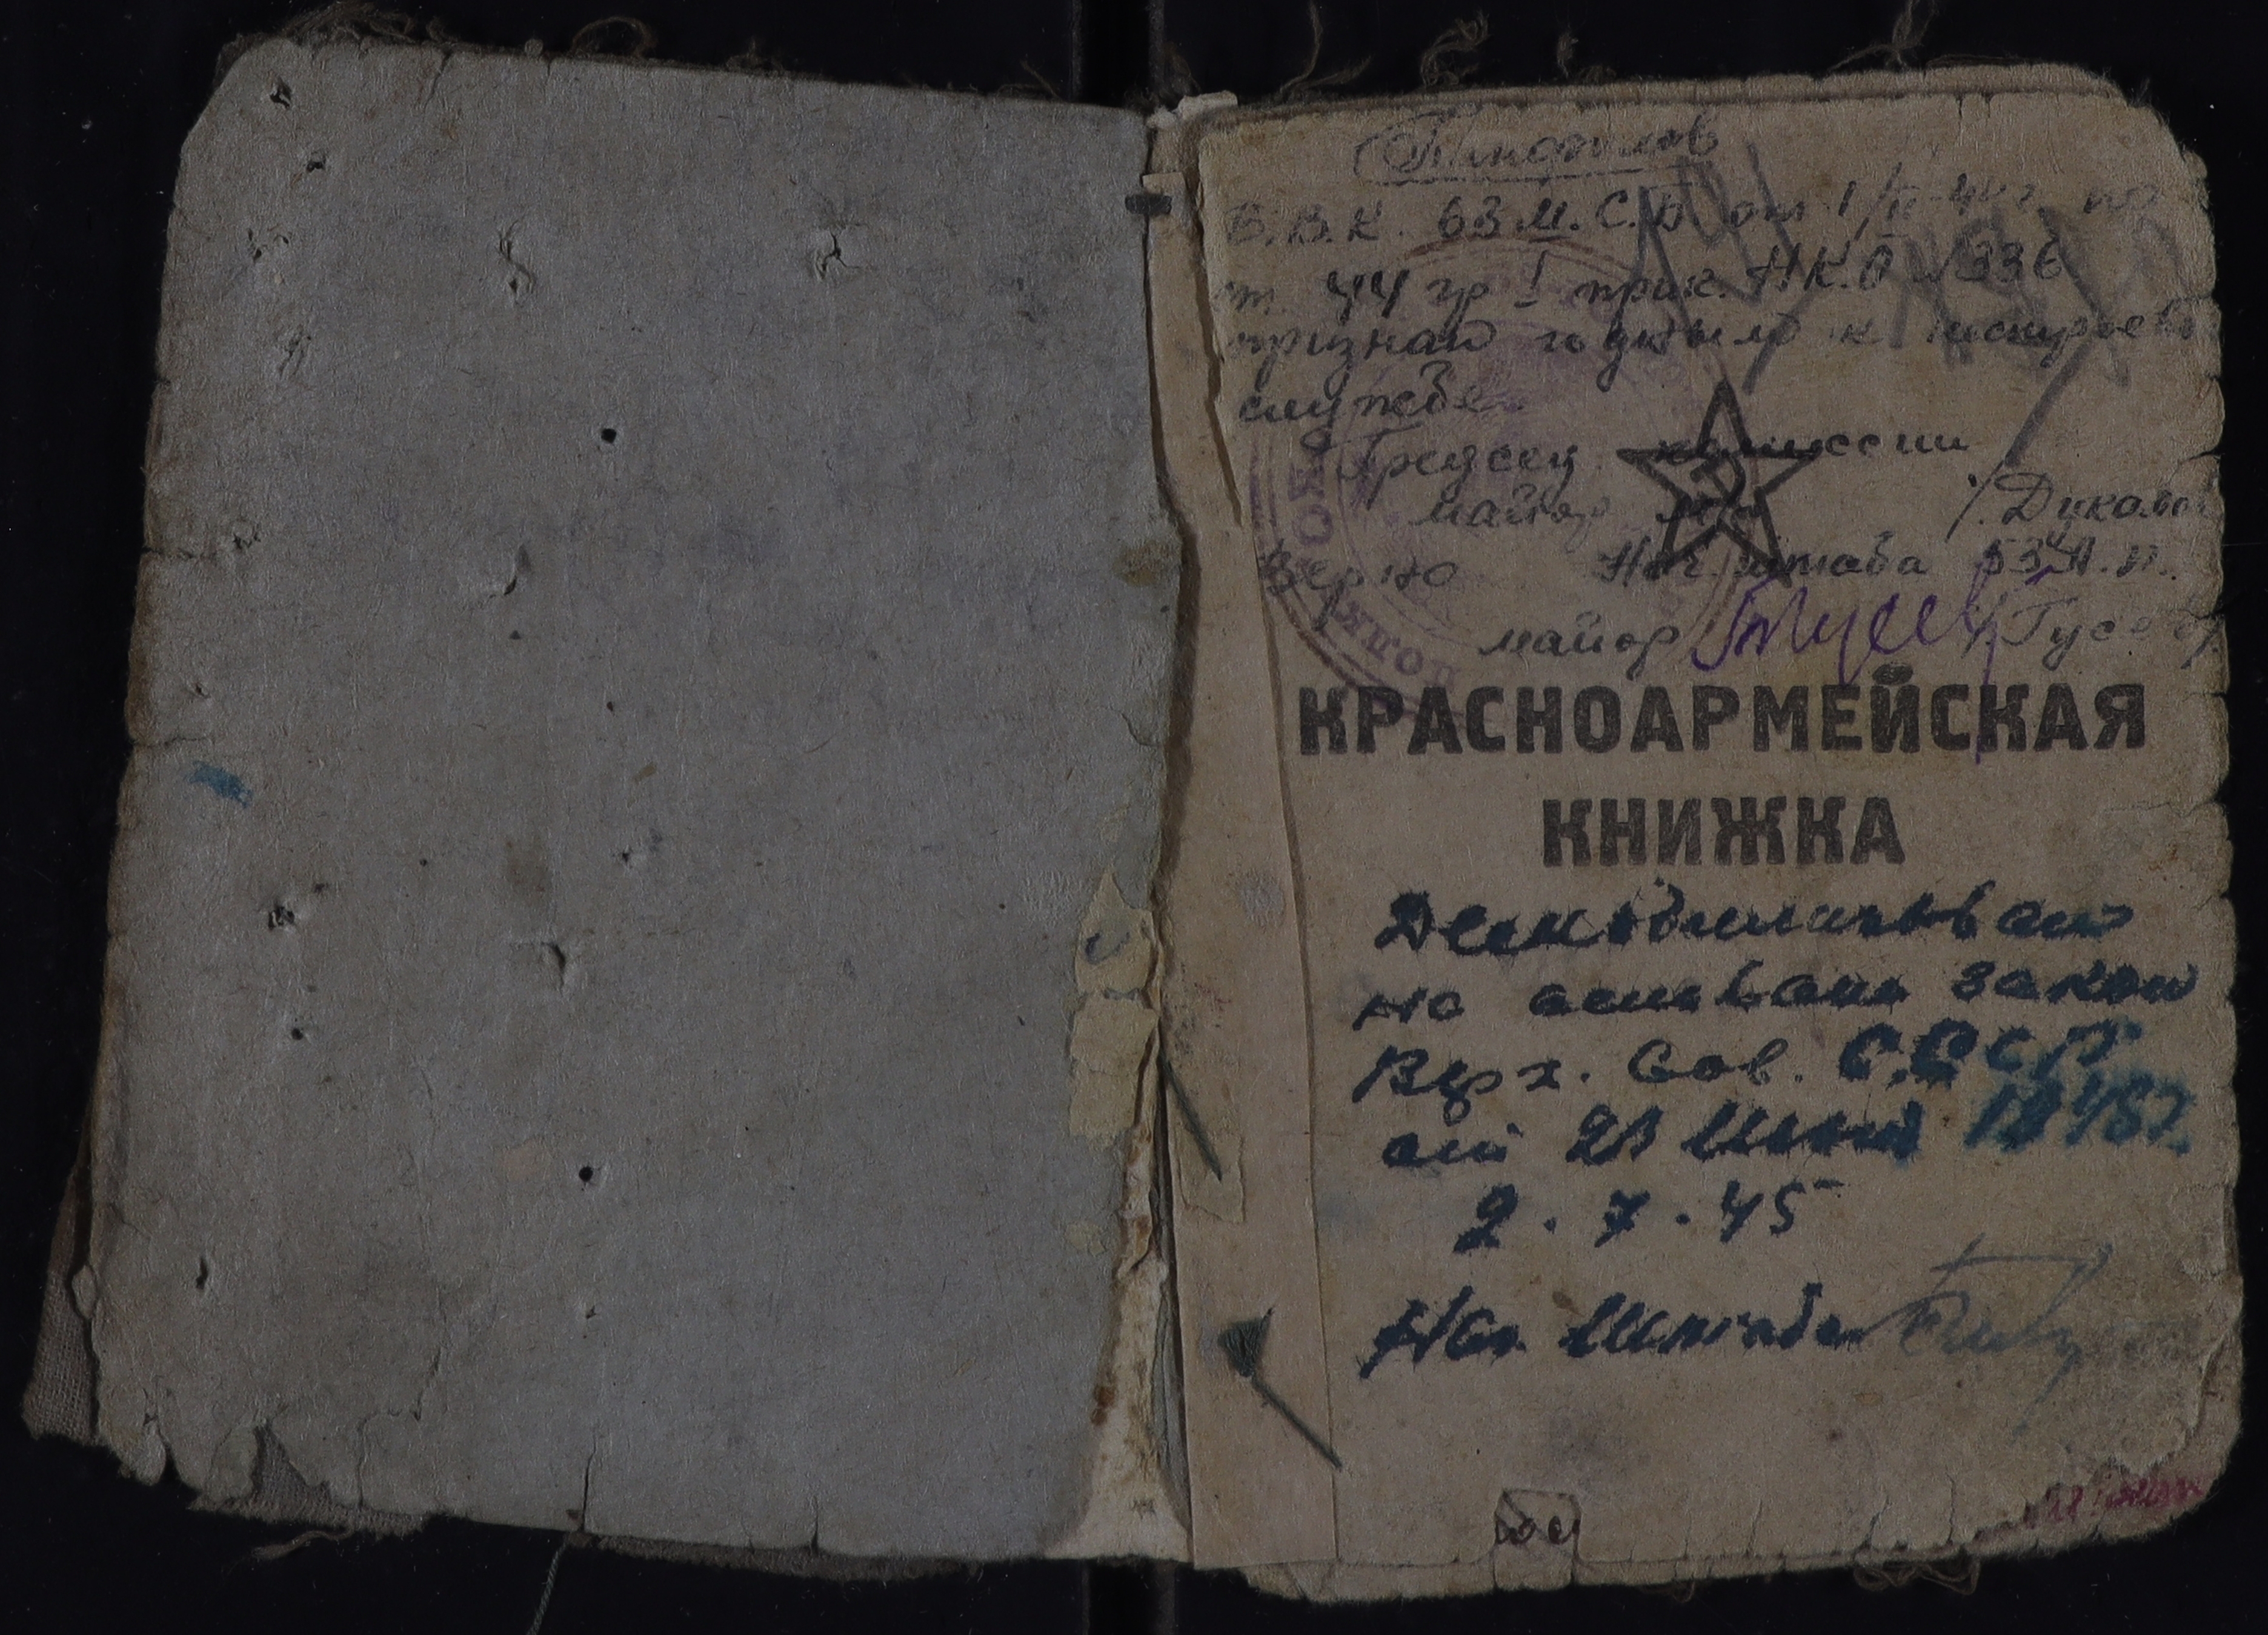 Г.В.К. 63 М.С.Б от 1/II-44г. по
ст. 44 гр I прик. Н.К.О №336
признан годным к нестроевой
службе.
Председ. комиссии
майор м/с /Дикало
Верно Нач. штаба 53 А.П.
майор /Гусев/
КРАСНОАРМЕЙСКАЯ
КНИЖКА
Демобилизован
на основани закон
Верх. Сов. СССР
от 23 Июня 1945г.
2.7.45
Нач Штаба